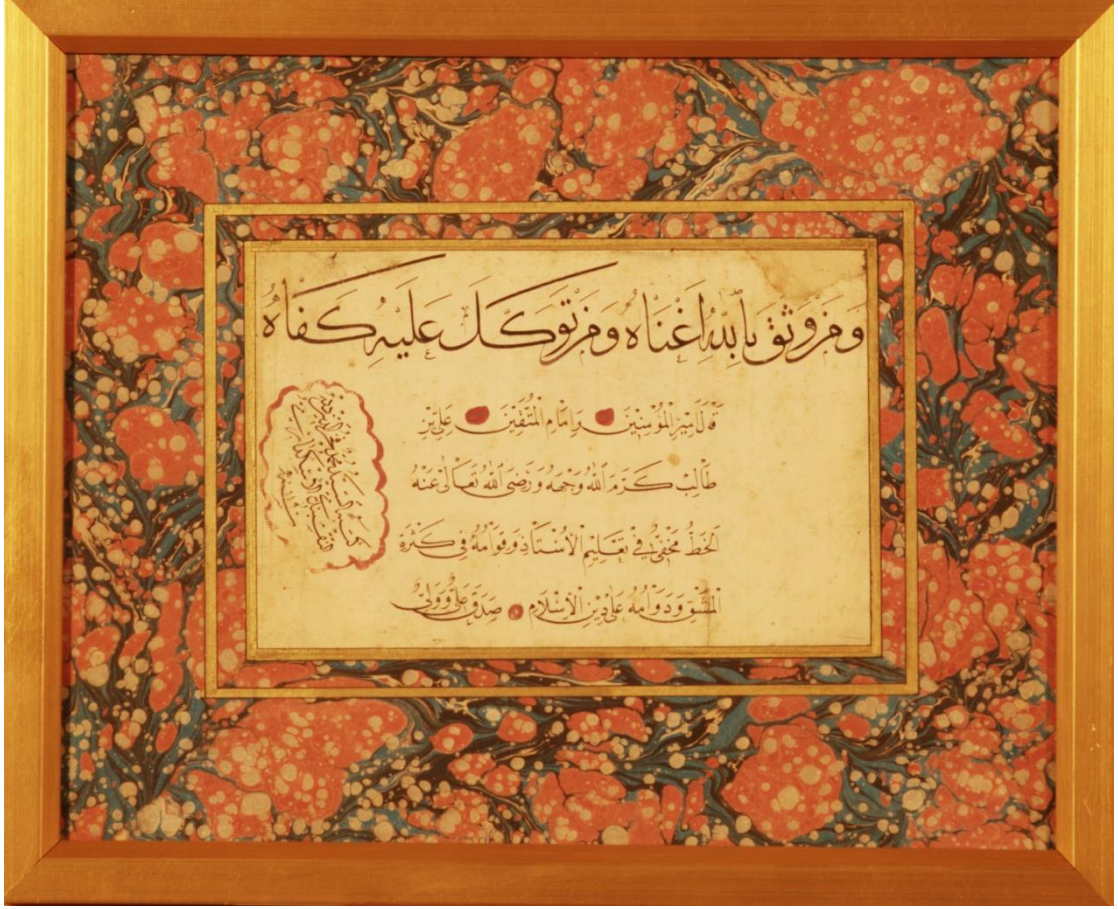 ومن وثق بالله اغناه ومن توكل عليه كفاه
قال امير المؤمنين وامام المتقين على بن
طالب كرم الله وجهه ورضى الله تعالى عنه
الخط مخفى فى تعليم الاستاذ وقوامه فى كثرة
المشق ودوامه على دين الاسلام صدق على وولى